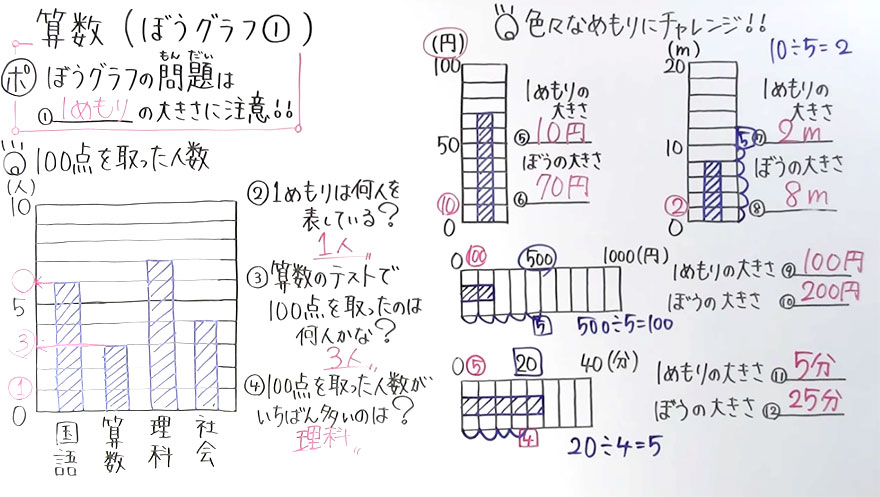 算数（ぼうグラフ①）
ポ ぼうグラフの問題は
もんだい
① 1めもり の大きさに注意!!
100点を取った人数
(人)
10
5
3
1
0
国語
算数
理科
社会
②1めもりは何人を
表している？
1人
③算数のテストで
100点を取ったのは
何人かな？
3人
④100点を取った人数が
いちばん多いのは？
理科
色々なめもりにチャレンジ!!
(円)
100
50
10
0
1めもりの
大きさ
⑤ 10円
ぼうの大きさ
⑥ 70円
(m)
10÷5=2
20
10
2
0
5
1めもりの
大きさ
⑦ 2m
ぼうの大きさ
⑧ 8m
0 100 500 1000(円)
5
500÷5=100
1めもりの大きさ ⑨ 100円
ぼうの大きさ ⑩ 200円
0 5 20 40(分)
4
20÷4=5
1めもりの大きさ ⑪ 5分
ぼうの大きさ ⑫ 25分